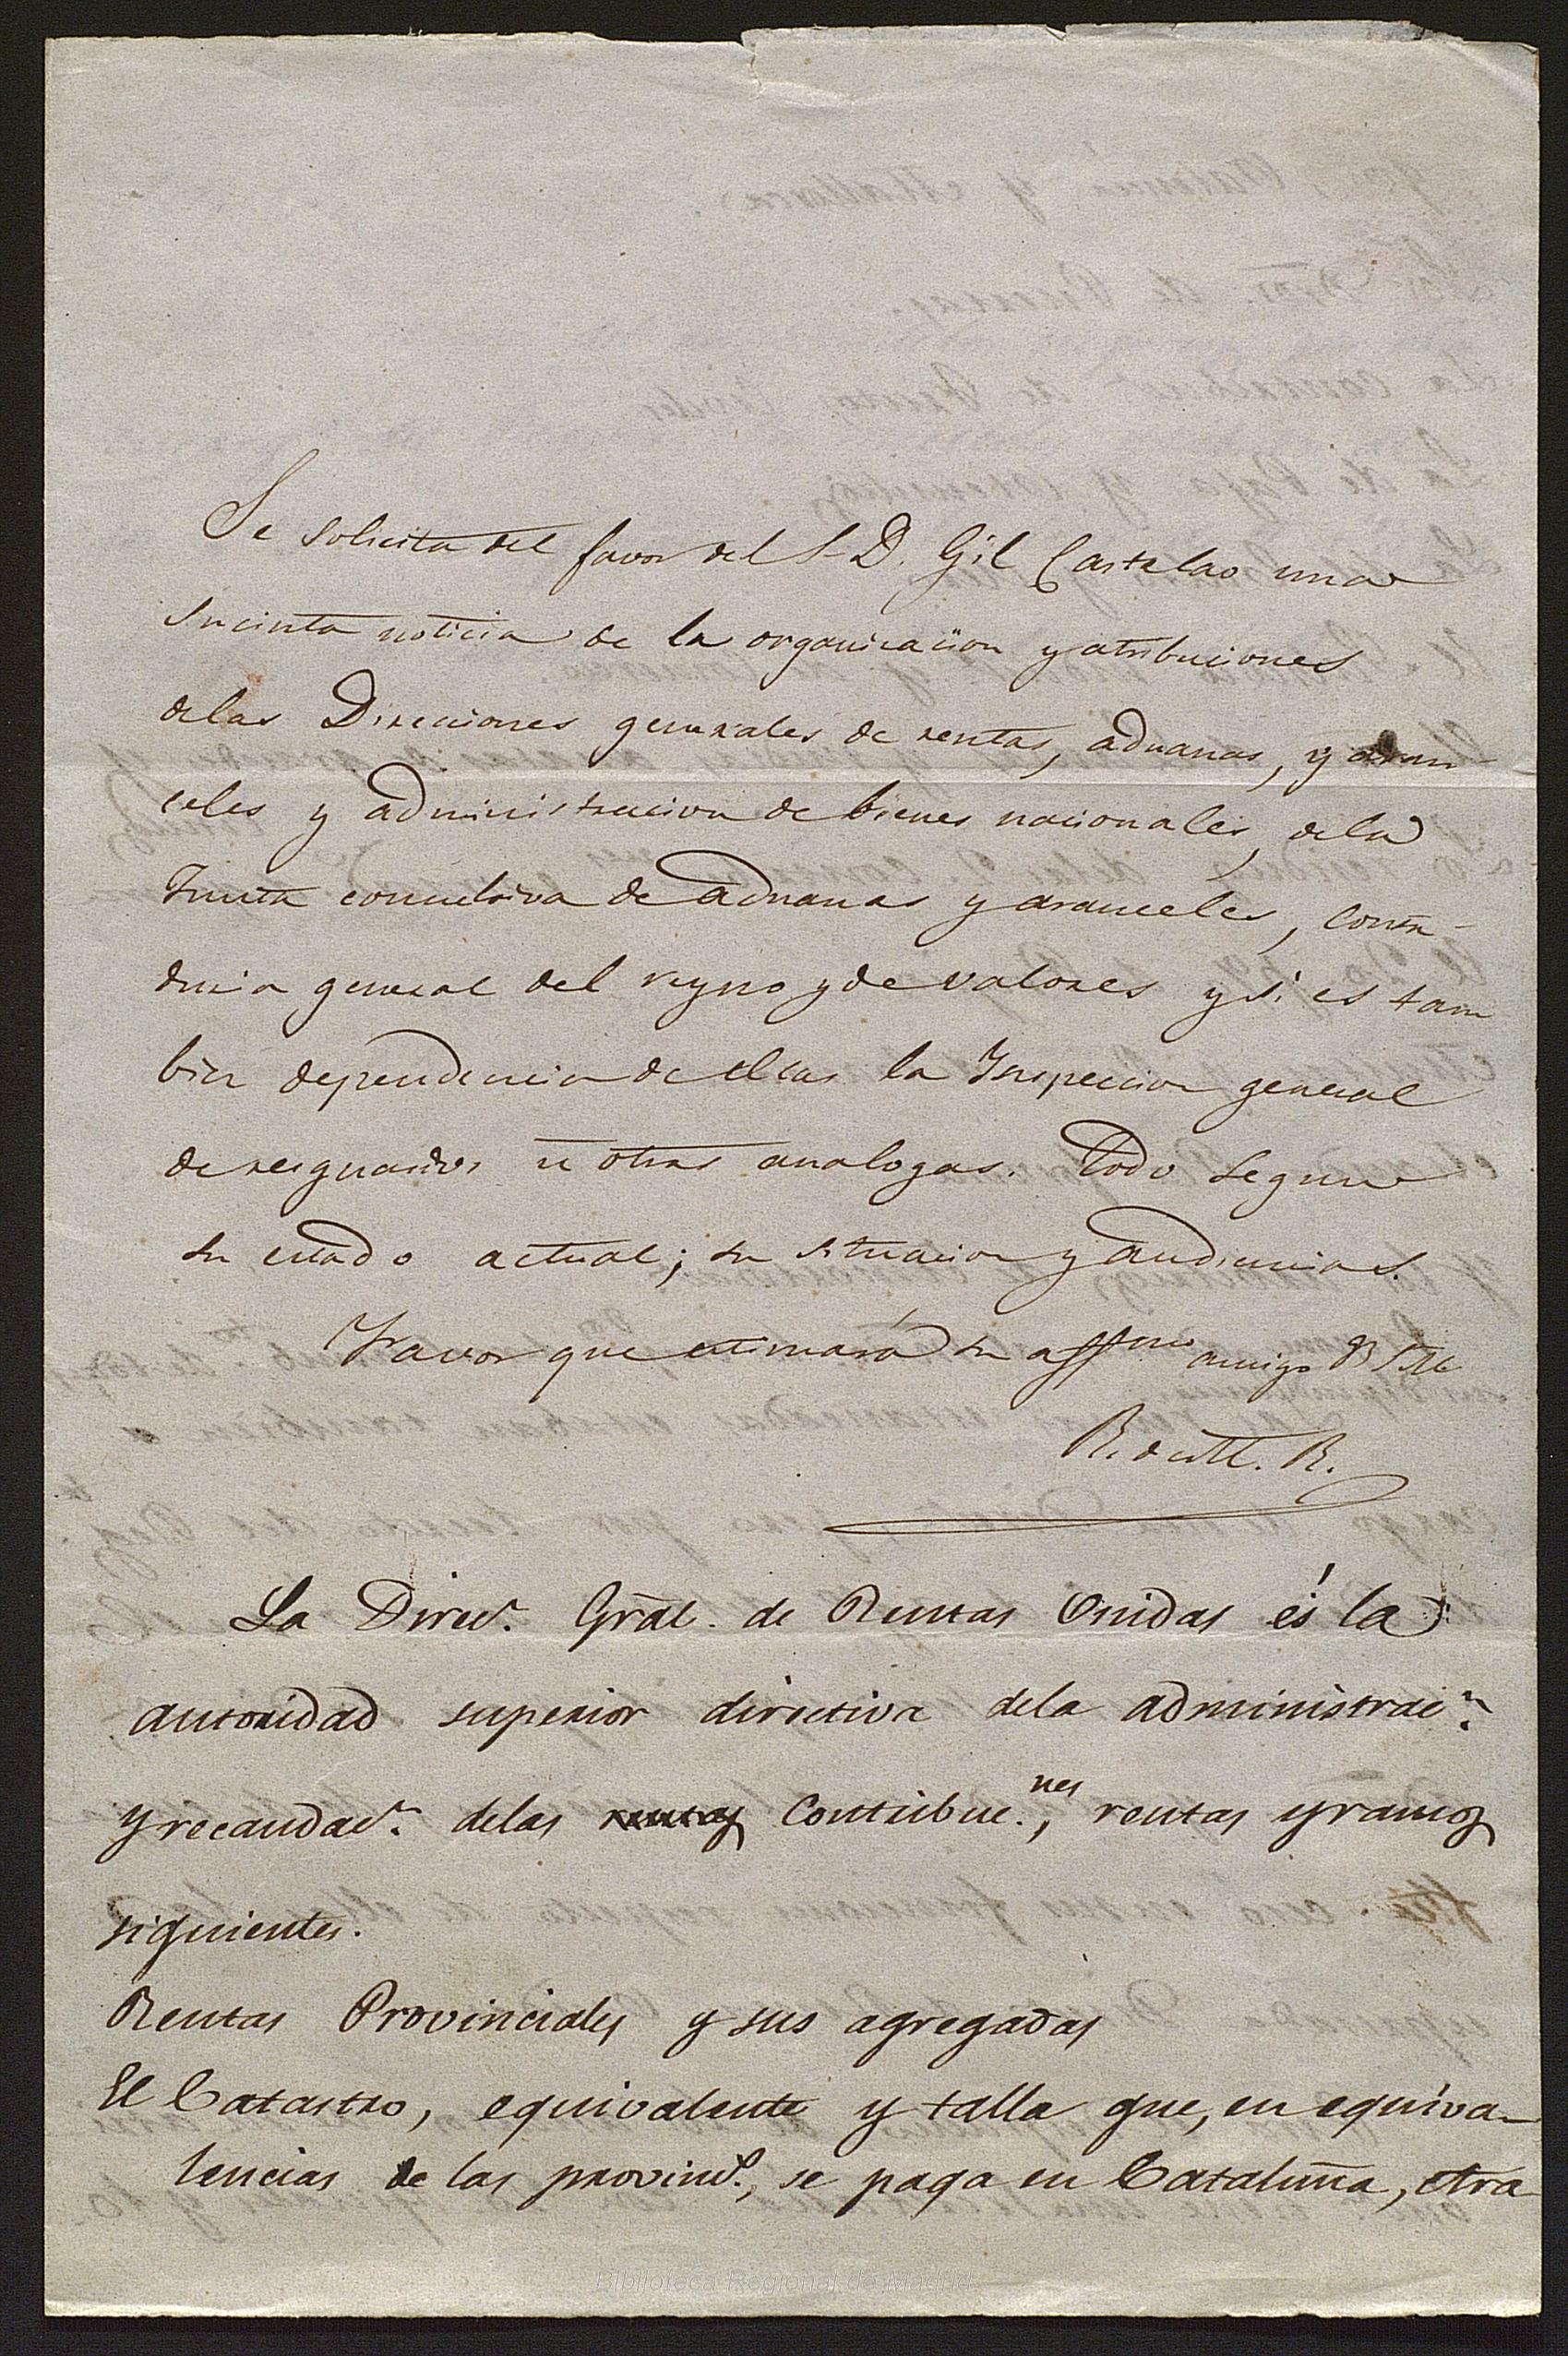 Se solicita del favor del S.D. Gil Castelao una
sucinta noticia de la organizacion y atribuciones
delas Direcciones generales de rentas, aduanas, y aran-
celes y administracion de bienes nacionales, dela
Junta consultiva de aduanas y aranceles, conta-
duria general del reyno y de valores y si es tam
bien dependencia de ellas la Inspeccion general
de resguardos ú otras analogas. Todo segun
su estado actual; su situacion y audiencias.
Favor que estimará su affmo amigo B S M
R. de M. R.
La Direcn. Gral. de Rentas Unidas és la
autoridad superior directiva dela administracn.
y recaudacn. delas rentas Contribucnes., rentas y ramos
siguientes.
Rentas Provinciales y sus agregadas
El Catastro, equivalente y talla que, en equiva-
lencias de las provincs., se paga en Cataluña, Ara
Biblioteca Regional de Madrid